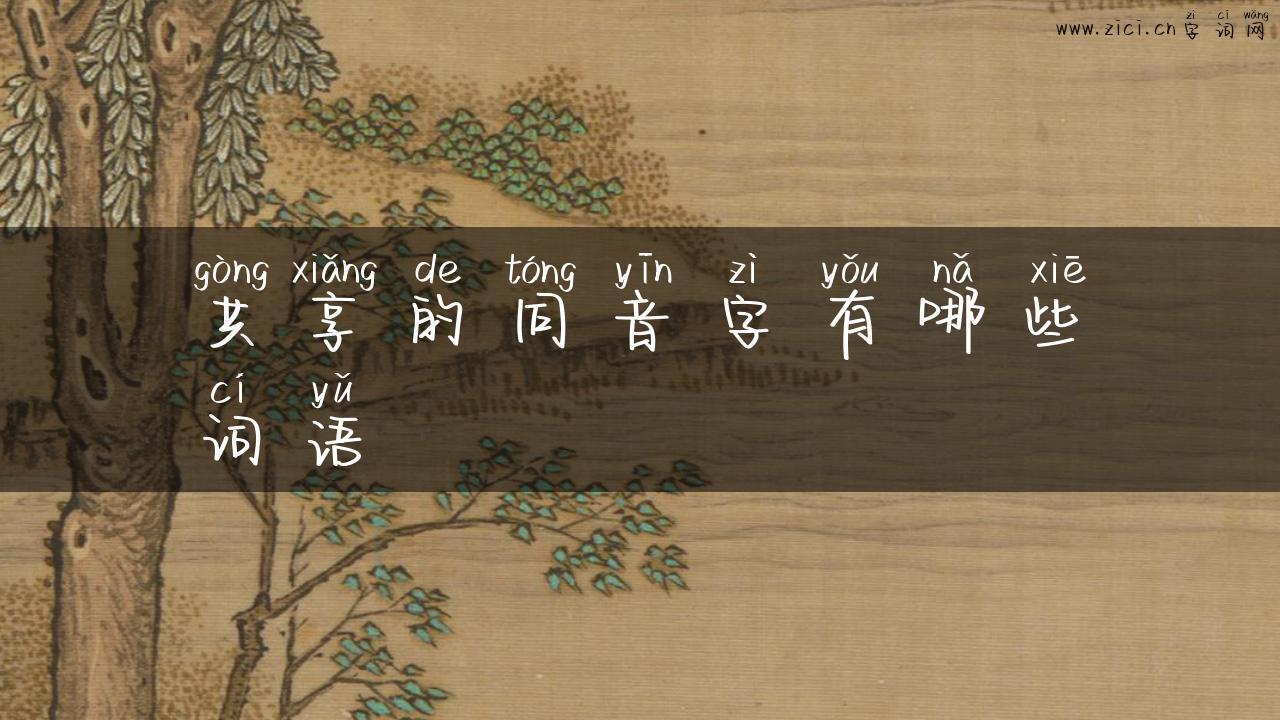 zì cí wǎng
www.zici.cn字词网
gòng xiǎng de tóng yīn zì yǒu nǎ xiē
共享的同音字有哪些
cí yǔ
词语